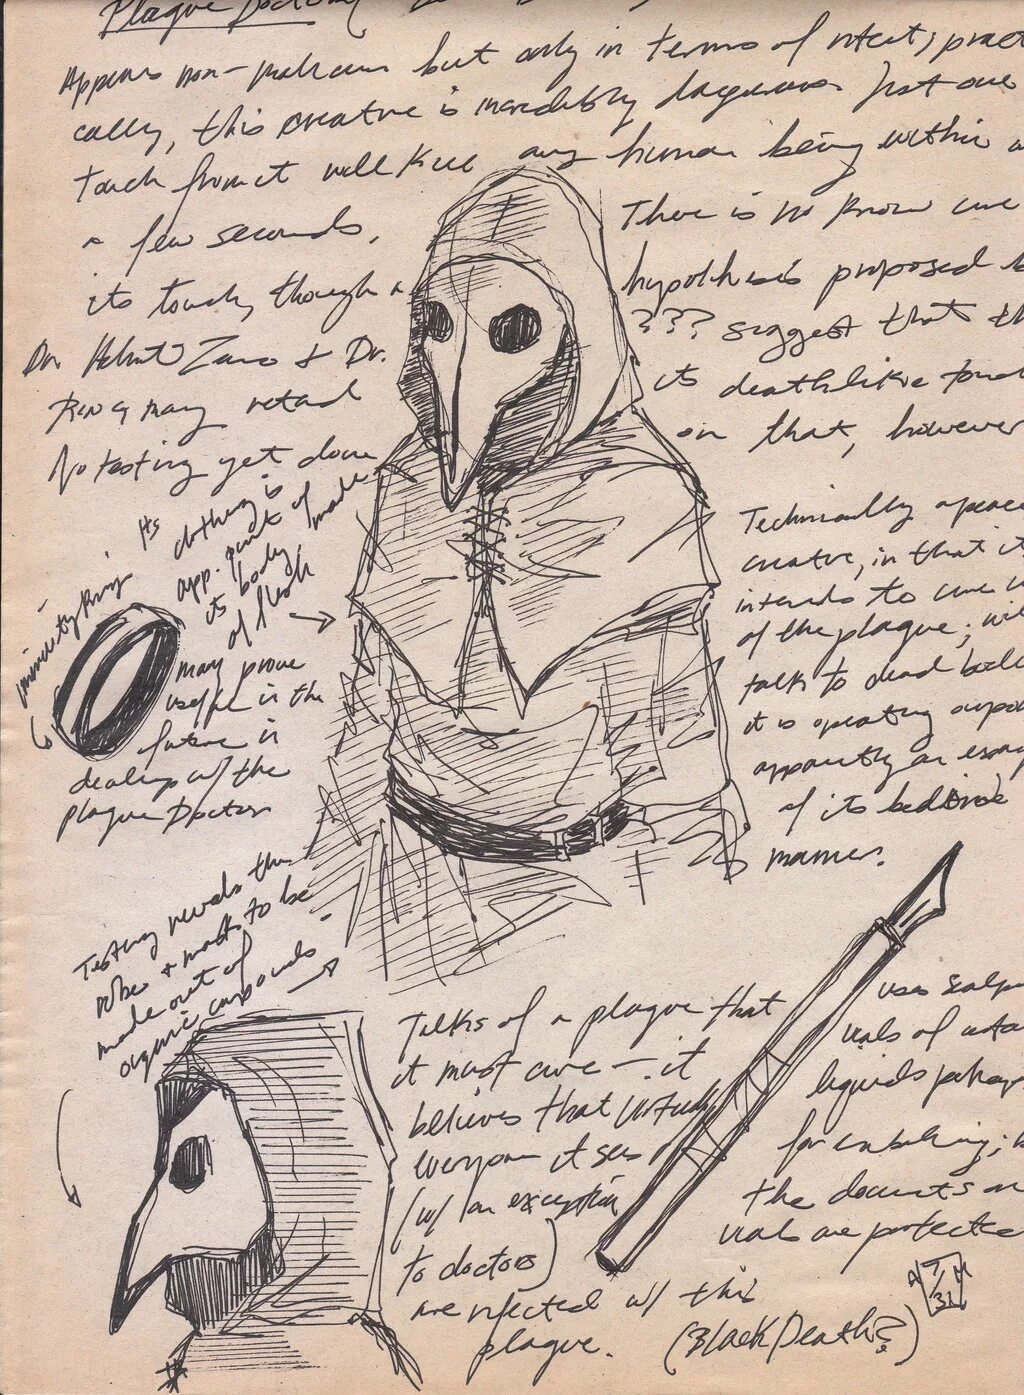 Plague Doctor
Appears non-malicious but only in terms of intent; pract
cally, this creature is incredibly dangerous. Just one
touch from it will kill any human being within
a few seconds.
There is no known cure
its touch, though a
hypothesis proposed b
Dr. Helmut Zano & Dr.
??? suggest that th
Ring may retard
its deathlike touch
on that, however
No testing yet done
immunity Ring
Its clothing is
app. part of
its body, made
of flesh
may prove
useful in the
future in
dealing w/ the
plague Doctor
Technically a peace
creature, in that it
intends to cure
of the plague; will
talk to dead bodi
it is operating upon
apparently an
of its bedside
manner.
Testing reveals the
robe & mask to be
made out of
organic compounds
Talks of a plague that
it must cure - it
believes that virtually
everyone it sees
(w/ an exception
to doctors)
are infected w/ this
plague. (Black Death?)
uses scalp
vials of
liquids
for
the documents
vials are protected
7/31